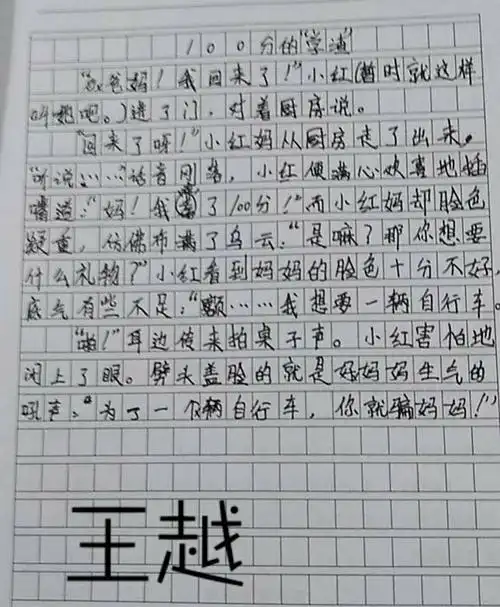 100分的“学渣”
“爸妈！我回来了！”小红（暂时就这样
叫她吧。）进了门，对着厨房说。
“回来了呀！”小红妈从厨房走了出来。
“听说……”话音刚落，小红便满心欢喜地插
嘴道：“妈！我考了100分！”而小红妈却脸色
凝重，仿佛布满了乌云：“是嘛？那你想要
什么礼物？”小红看到妈妈的脸色十分不好，
底气有些不足：“额……我想要一辆自行车。
“啪！”耳边传来拍桌子声。小红害怕地
闭上了眼。劈头盖脸的就是好妈妈生气的
吼声：“为了一个辆自行车，你就骗妈妈！”
王越